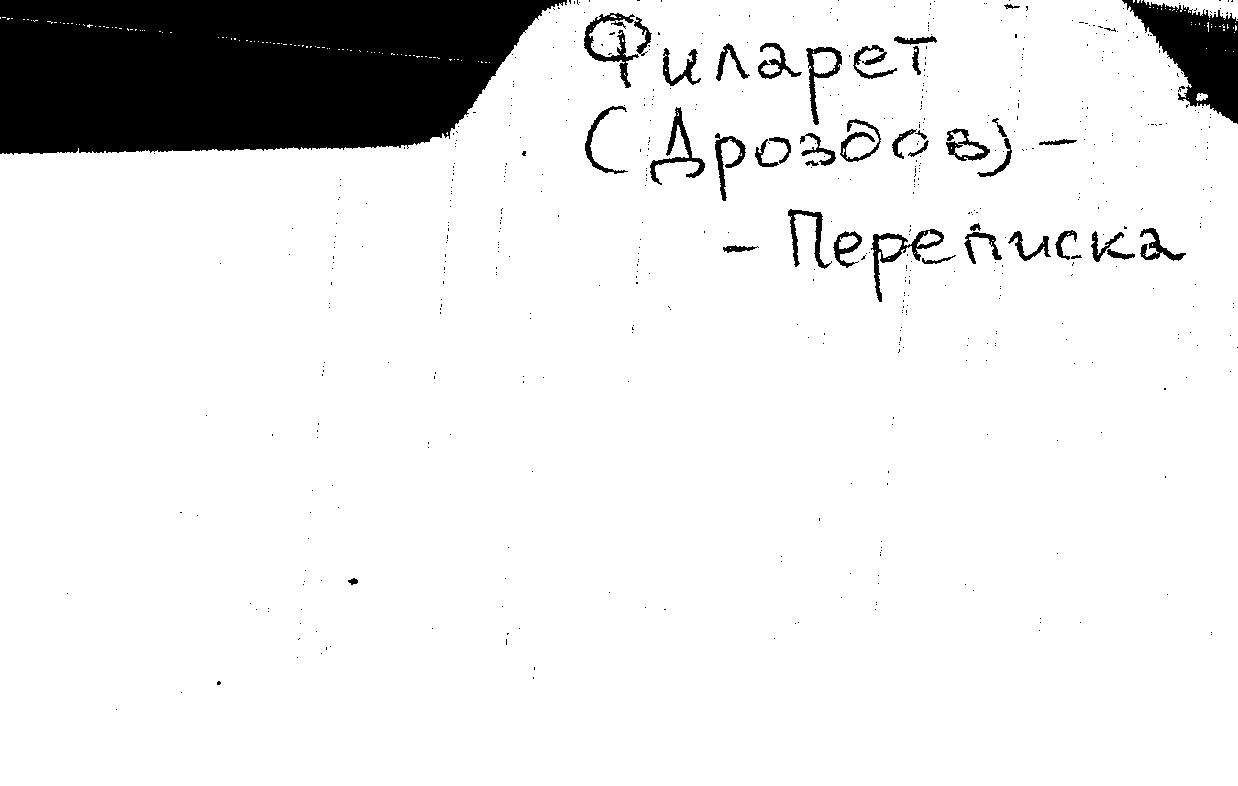 Филарет
(Дроздов) -
- Переписка